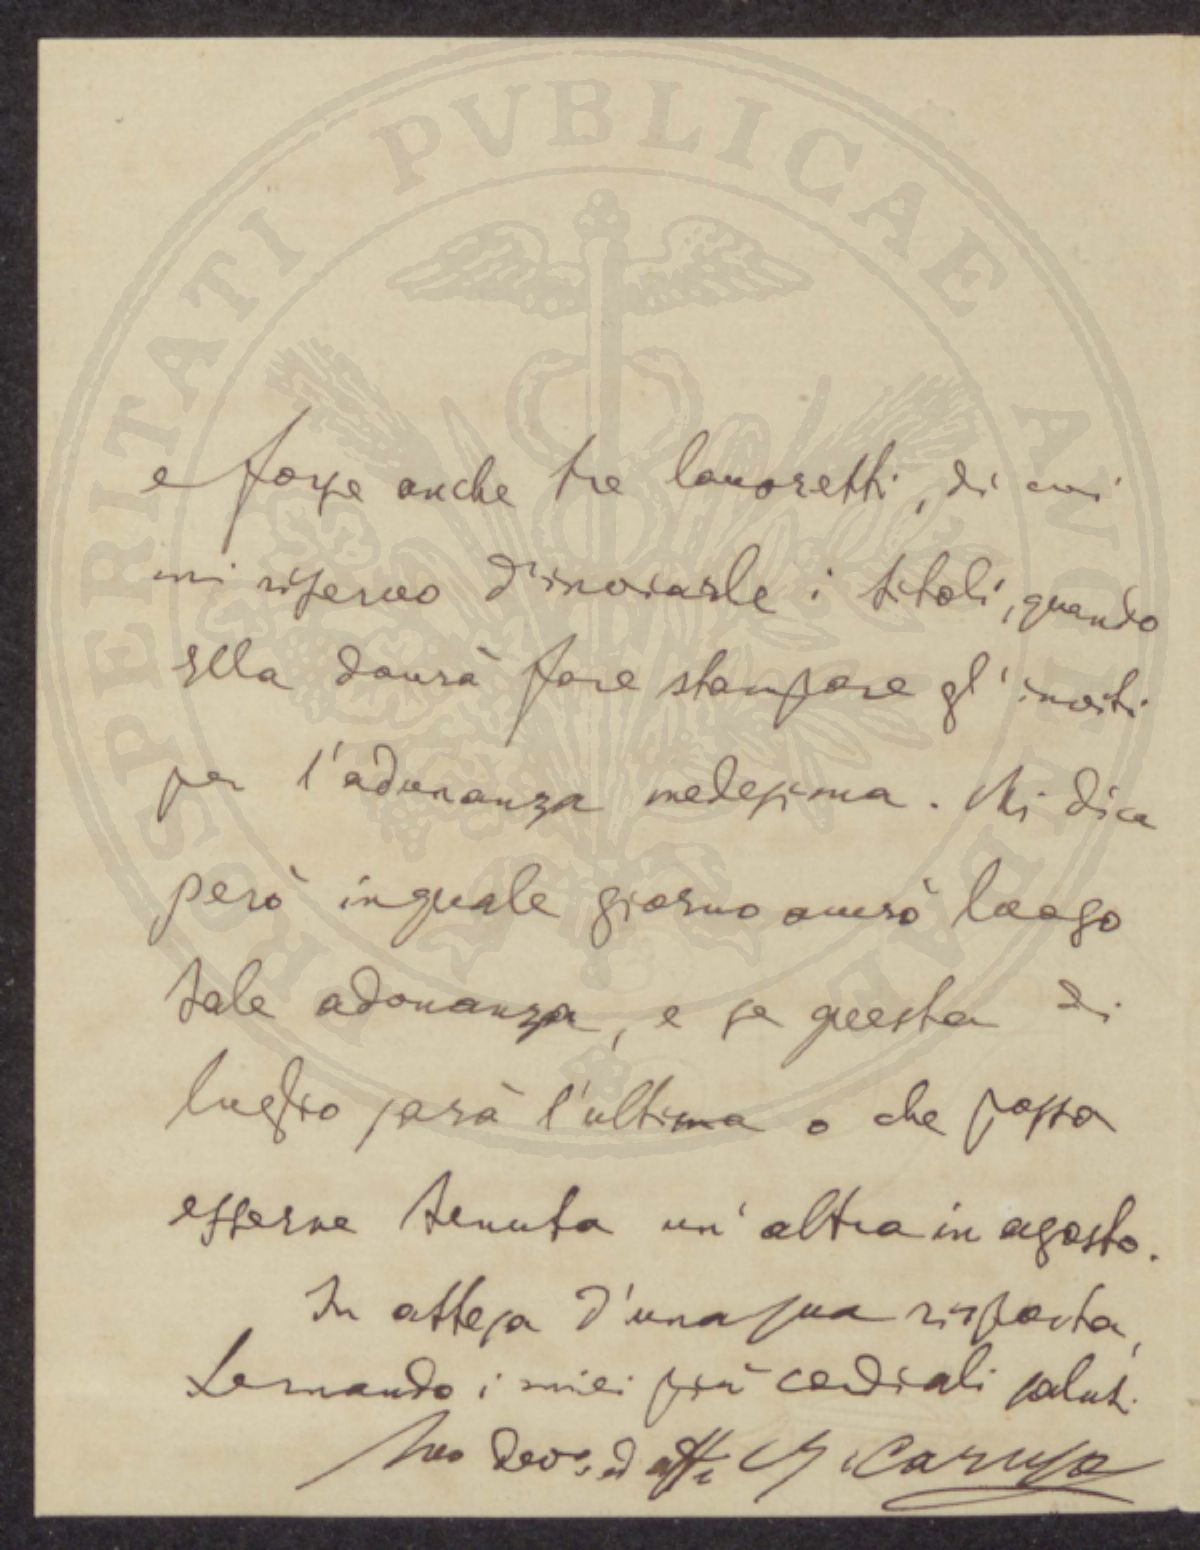 PROSPERITATI PVBLICAE AVGENDAE
e forse anche tre lavoretti, di cui
mi riservo d'inviarle i titoli, quando
Ella dovrà fare stampare gl'inviti
per l'adunanza medesima. Mi dica
però in quale giorno avrà luogo
tale adunanza, e se questa di
luglio sarà l'ultima o che possa
esserne tenuta un'altra in agosto.
In attesa d'una sua risposta,
Le mando i miei più cordiali saluti.
Suo devo. ed aff. G. Caruso